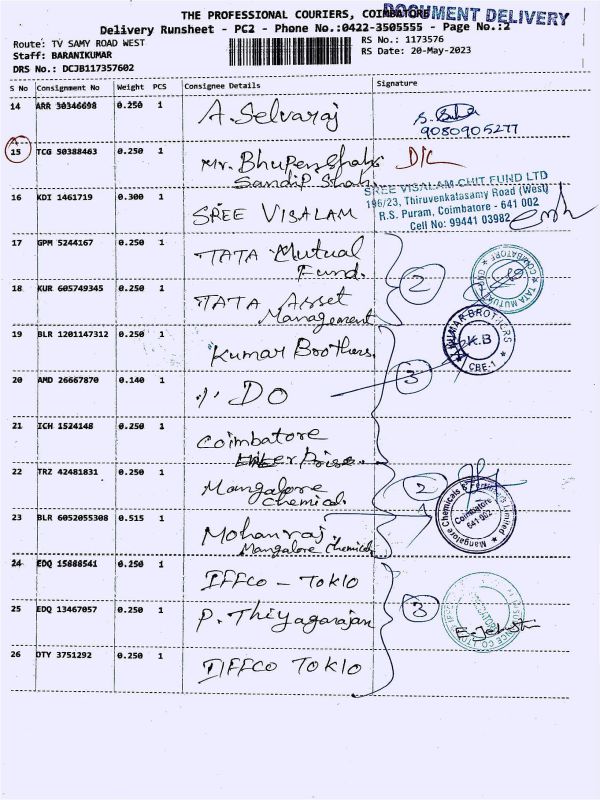 THE PROFESSIONAL COURIERS, COIMBATORE
DOCUMENT DELIVERY
Delivery Runsheet - PC2 - Phone No.:0422-3505555 - Page No.:2
Route: TV SAMY ROAD WEST
RS No.: 1173576
Staff: BARANIKUMAR
RS Date: 20-May-2023
DRS No.: DCJB117357602
S No Consignment No Weight PCS Consignee Details Signature
14 ARR 30346698 0.250 1 A. Selvaraj
9080905277
15 TCG 50388463 0.250 1 Mr. Bhupen Shah D/C
Sandip Shah
16 KDI 1461719 0.300 1 SREE VISALAM
SREE VISALAM CHIT FUND LTD
196/23, Thiruvenkatasamy Road (West)
R.S. Puram, Coimbatore - 641 002
Cell No: 99441 03982
17 GPM 5244167 0.250 1 TATA Mutual
Fund.
2
TATA MUTUAL
COIMBATORE
18 KUR 605749345 0.250 1 TATA Asset
Management
19 BLR 1201147312 0.250 1 Kumar Brothers.
KUMAR BROTHERS
K.B
CBE-1
20 AMD 26667870 0.140 1 DO
3
21 ICH 1524148 0.250 1 Coimbatore
Enterprise.
22 TRZ 42481831 0.250 1 Mangalore
Chemical.
2
Mangalore Chemicals & Fertilizers Limited
Coimbatore
641 002
23 BLR 6052055308 0.515 1 Mohanraj.
Mangalore Chemical
24 EDQ 15888541 0.250 1 IFFCO - TOKIO
25 EDQ 13467057 0.250 1 P. Thiyagarajan
3
26 DTY 3751292 0.250 1 IFFCO TOKIO